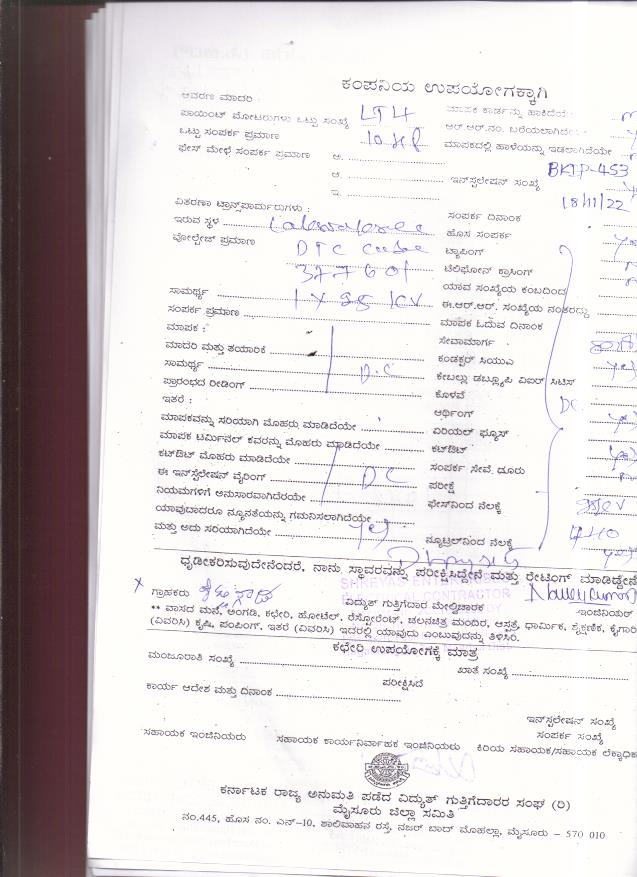 ಕಂಪನಿಯ ಉಪಯೋಗಕ್ಕಾಗಿ
ಆವರಣ ಮಾದರಿ : ಮಾಪಕ ಕಾರ್ಡನ್ನು ಹಾಕಿದೆಯೇ
ಪಾಯಿಂಟ್ ಮೋಟರುಗಳು ಒಟ್ಟು ಸಂಖ್ಯೆ LT4 ಆರ್.ಆರ್.ನಂ. ಬರೆಯಲಾಗಿದೆ
ಒಟ್ಟು ಸಂಪರ್ಕ ಪ್ರಮಾಣ 10 HP ಮಾಪಕದಲ್ಲಿ ಹಾಳೆಯನ್ನು ಇಡಲಾಗಿದೆಯೇ
ಫೇಸ್ ಮೇಲೆ ಸಂಪರ್ಕ ಪ್ರಮಾಣ ಅ.
ಆ. ಇನ್‌ಸ್ಟಲೇಷನ್ ಸಂಖ್ಯೆ BKTP-453
ಇ. 18/11/22
ವಿತರಣಾ ಟ್ರಾನ್ಸ್‌ಫಾರ್ಮರುಗಳು : ಸಂಪರ್ಕ ದಿನಾಂಕ
ಇರುವ ಸ್ಥಳ ಹೊಸ ಸಂಪರ್ಕ
ವೋಲ್ಟೇಜ್ ಪ್ರಮಾಣ DTC Code ಟ್ಯಾಪಿಂಗ್
377601 ಟೆಲಿಫೋನ್ ಕ್ರಾಸಿಂಗ್
ಸಾಮರ್ಥ್ಯ 1 X 25 KV ಯಾವ ಸಂಖ್ಯೆಯ ಕಂಬದಿಂದ
ಸಂಪರ್ಕ ಪ್ರಮಾಣ ಈ.ಆರ್.ಆರ್. ಸಂಖ್ಯೆಯ ನಂತರದ್ದು
ಮಾಪಕ : ಮಾಪಕ ಓದುವ ದಿನಾಂಕ
ಮಾದರಿ ಮತ್ತು ತಯಾರಿಕೆ ಸೇವಾಮಾರ್ಗ
ಸಾಮರ್ಥ್ಯ D.C ಕಂಡಕ್ಟರ್ ಸಿಯುಎ
ಪ್ರಾರಂಭದ ರೀಡಿಂಗ್ ಕೇಬಲ್ಲು ಡಬ್ಲ್ಯೂಪಿ ವಿಐರ್ ಸಿಟಿಸ್
ಇತರೆ : ಕೊಳವೆ
ಮಾಪಕವನ್ನು ಸರಿಯಾಗಿ ಮೊಹರು ಮಾಡಿದೆಯೇ ಆರ್ಥಿಂಗ್ DC
ಮಾಪಕ ಟರ್ಮಿನಲ್ ಕವರನ್ನು ಮೊಹರು ಮಾಡಿದೆಯೇ ಏರಿಯಲ್ ಫ್ಯೂಸ್
ಕಟ್‌ಔಟ್ ಮೊಹರು ಮಾಡಿದೆಯೇ ಕಟ್‌ಔಟ್
ಈ ಇನ್‌ಸ್ಟಲೇಷನ್ ವೈರಿಂಗ್ DC ಸಂಪರ್ಕ ಸೇವೆ ದೂರು
ನಿಯಮಗಳಿಗೆ ಅನುಸಾರವಾಗಿದೆಯೇ ಪರೀಕ್ಷೆ
ಯಾವುದಾದರೂ ನ್ಯೂನತೆಯನ್ನು ಗಮನಿಸಲಾಗಿದೆಯೇ ಫೇಸ್‌ನಿಂದ ನೆಲಕ್ಕೆ
ಮತ್ತು ಅದು ಸರಿಯಾಗಿದೆಯೇ yes ನ್ಯೂಟ್ರಲ್‌ನಿಂದ ನೆಲಕ್ಕೆ 440
ಧೃಡೀಕರಿಸುವುದೇನೆಂದರೆ, ನಾನು ಸ್ಥಾವರವನ್ನು ಪರೀಕ್ಷಿಸಿದ್ದೇನೆ ಮತ್ತು ರೇಟಿಂಗ್ ಮಾಡಿದ್ದೇನೆ
ಗ್ರಾಹಕರು ವಿದ್ಯುತ್ ಗುತ್ತಿಗೆದಾರ ಮೇಲ್ವಿಚಾರಕ ಇಂಜಿನಿಯರ್
** ವಾಸದ ಮನೆ, ಅಂಗಡಿ, ಕಛೇರಿ, ಹೋಟೆಲ್, ರೆಸ್ಟೋರೆಂಟ್, ಚಲನಚಿತ್ರ ಮಂದಿರ, ಆಸ್ಪತ್ರೆ, ಧಾರ್ಮಿಕ, ಶೈಕ್ಷಣಿಕ, ಕೈಗಾರಿ
(ವಿವರಿಸಿ) ಕೃಷಿ, ಪಂಪಿಂಗ್, ಇತರೆ (ವಿವರಿಸಿ) ಇದರಲ್ಲಿ ಯಾವುದು ಎಂಬುವುದನ್ನು ತಿಳಿಸಿರಿ.
ಕಛೇರಿ ಉಪಯೋಗಕ್ಕೆ ಮಾತ್ರ
ಮಂಜೂರಾತಿ ಸಂಖ್ಯೆ ಖಾತೆ ಸಂಖ್ಯೆ
ಪರೀಕ್ಷಿಸಿದೆ
ಕಾರ್ಯ ಆದೇಶ ಮತ್ತು ದಿನಾಂಕ
ಇನ್‌ಸ್ಟಲೇಷನ್ ಸಂಖ್ಯೆ
ಸಂಪರ್ಕ ಸಂಖ್ಯೆ
ಸಹಾಯಕ ಇಂಜಿನಿಯರು ಸಹಾಯಕ ಕಾರ್ಯನಿರ್ವಾಹಕ ಇಂಜಿನಿಯರು ಕಿರಿಯ ಸಹಾಯಕ/ಸಹಾಯಕ ಲೆಕ್ಕಾಧಿಕ
ಕರ್ನಾಟಕ ರಾಜ್ಯ ಅನುಮತಿ ಪಡೆದ ವಿದ್ಯುತ್ ಗುತ್ತಿಗೆದಾರರ ಸಂಘ (ರಿ)
ಮೈಸೂರು ಜಿಲ್ಲಾ ಸಮಿತಿ
ನಂ.445, ಹೊಸ ನಂ. ಎನ್-10, ಶಾಲಿವಾಹನ ರಸ್ತೆ, ನಜರ್ ಬಾದ್ ಮೊಹಲ್ಲಾ, ಮೈಸೂರು - 570 010